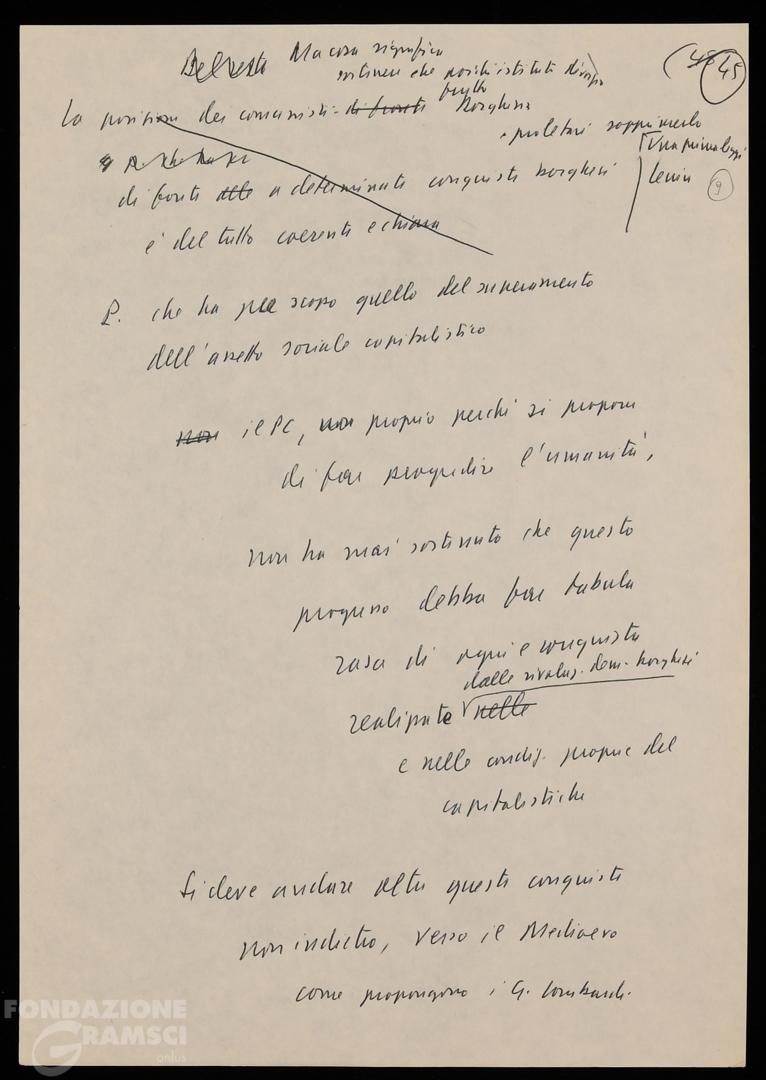 Del resto Ma cosa significa
sostenere che
45
La posizione dei comunisti di fronte borghesia
Lenin
9
di fronte alle a determinate conquiste borghesi
è del tutto coerente e chiara
P. che ha per scopo quello del superamento
dell'assetto sociale capitalistico
non il PC, non proprio perché si propone
di far progredire l'umanità,
non ha mai sostenuto che questo
progresso debba fare tabula
rasa di ogni e conquista
dalle rivoluz. dem. borghesi
realizzate nelle
e nelle condiz. proprie del
capitalistiche
Si deve andare oltre queste conquiste
non indietro, verso il Medioevo
come propongono i G. Lombardi.
FONDAZIONE
GRAMSCI
onlus